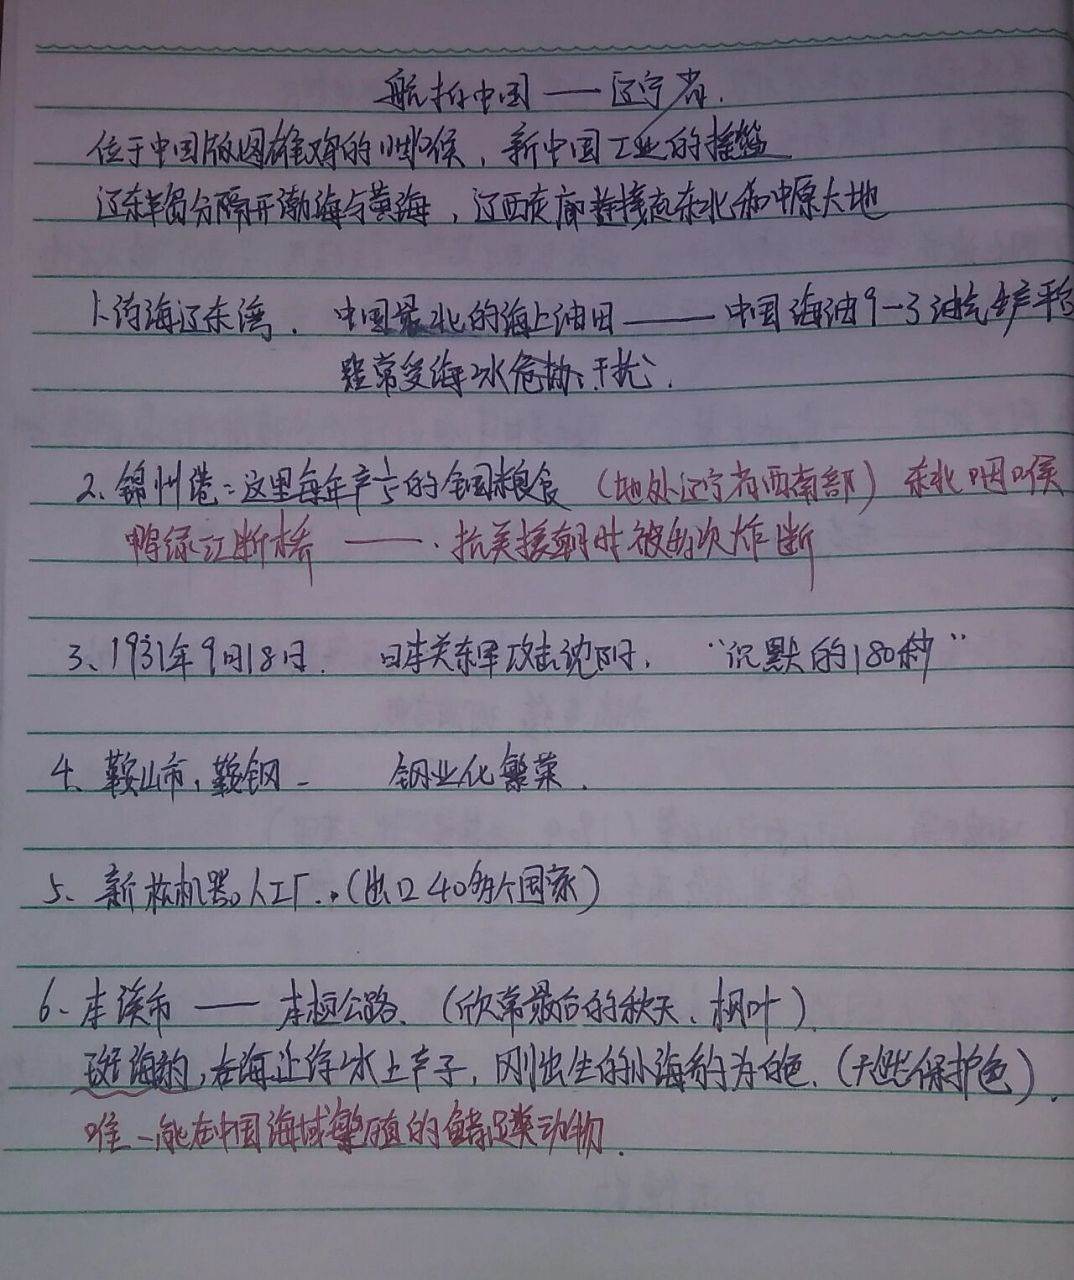 航拍中国——辽宁省.
位于中国版图雄鸡的咽喉、新中国工业的摇篮
辽东半岛分隔开渤海与黄海，辽西走廊连接起东北和中原大地
1.渤海辽东湾. 中国最北的海上油田——中国海油9-3油气生产平台
经常受海冰危胁、干扰.
2、锦州港：这里每年产⅕的全国粮食（地处辽宁省西南部）东北咽喉
鸭绿江断桥——.抗美援朝时被多次炸断
3、1931年9月18日. 日本关东军攻击沈阳. “沉默的180秒”
4、鞍山市，鞍钢- 钢业化繁荣.
5、新松机器人工厂.（出口40多个国家）
6、本溪市——本桓公路.（欣赏最后的秋天、枫叶）.
斑海豹，在海上浮冰上产子，刚出生的小海豹为白色.（天然保护色）.
唯一能在中国海域繁殖的鳍足类动物.